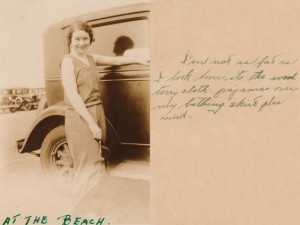 I'm not as fat as
I look here its the wool
terry cloth pajamas over
my bathing skirt plus
wind.
AT THE BEACH.